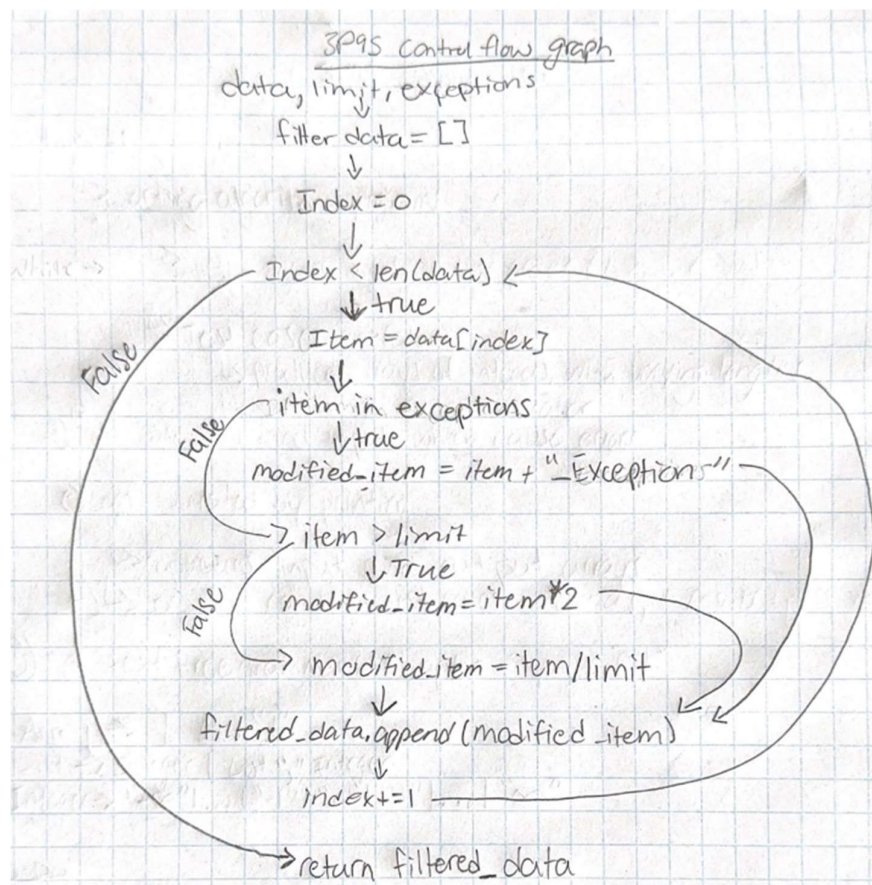 3P95 control flow graph
data, limit, exceptions
filter data = []
Index = 0
Index < len(data)
true
False
Item = data[index]
item in exceptions
False
true
modified_item = item + "_Exceptions"
item > limit
True
False
modified_item = item*2
modified_item = item/limit
filtered_data.append(modified_item)
index+=1
return filtered_data